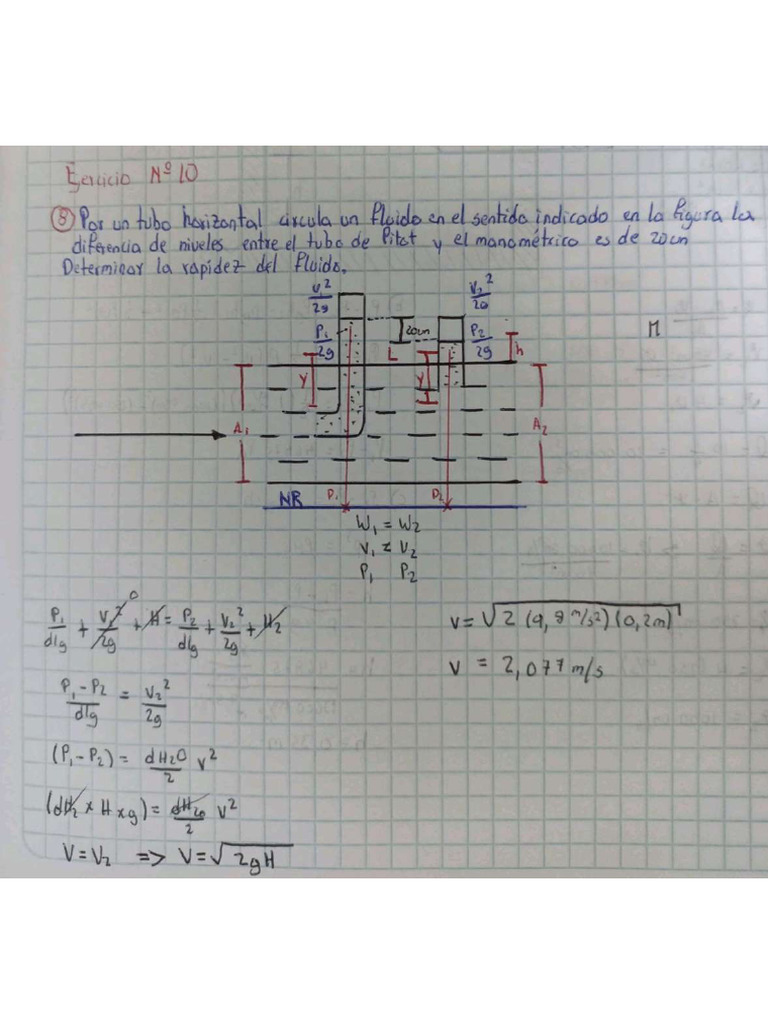 Ejercicio Nº 10
⑧ Por un tubo horizontal circula un fluido en el sentido indicado en la figura la
diferencia de niveles entre el tubo de Pitot y el manométrico es de 20cm
Determinar la rapidez del fluido.
V₁²/2g V₂²/2g
P₁/2g 20cm P₂/2g h M
L
Y Y
A₁ A₂
NR D₁ D₂
W₁ = W₂
V₁ ≠ V₂
P₁ P₂
P₁/dlg + V₁²/2g 0 + H = P₂/dlg + V₂²/2g + H₂
P₁-P₂/dlg = V₂²/2g
(P₁-P₂) = dH₂O/2 V²
(dH₂ x H x g) = dH₂₀/2 V²
V=V₂ => V=√2gH
V=√2 (9,8 m/s²)(0,2m)
V = 2,077 m/s